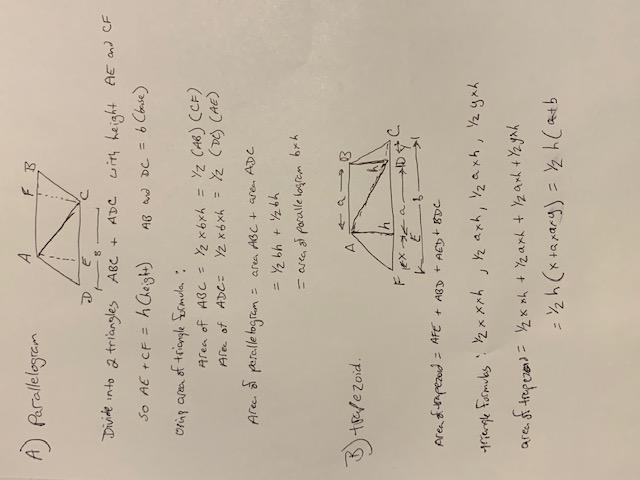 A) Parallelogram
A F B
D E C
B
Divide into 2 triangles ABC + ADC with height AE and CF
So AE + CF = h (height) AB and DC = b (base)
Using area of triangle formula:
Area of ABC = 1/2 x b x h = 1/2 (AB) (CF)
Area of ADC = 1/2 x b x h = 1/2 (DC) (AE)
Area of parallelogram = area ABC + area ADC
= 1/2 bh + 1/2 bh
= area of parallelogram b x h
B) trapezoid.
a
A B
h h
F E D C
x a y
b
Area of trapezoid = AFE + ABD + AED + BDC
triangle formulas: 1/2 x x h, 1/2 a x h, 1/2 a x h, 1/2 y x h
area of trapezoid = 1/2 x x h + 1/2 a x h + 1/2 a x h + 1/2 y x h
= 1/2 h (x + a + a + y) = 1/2 h (a + b